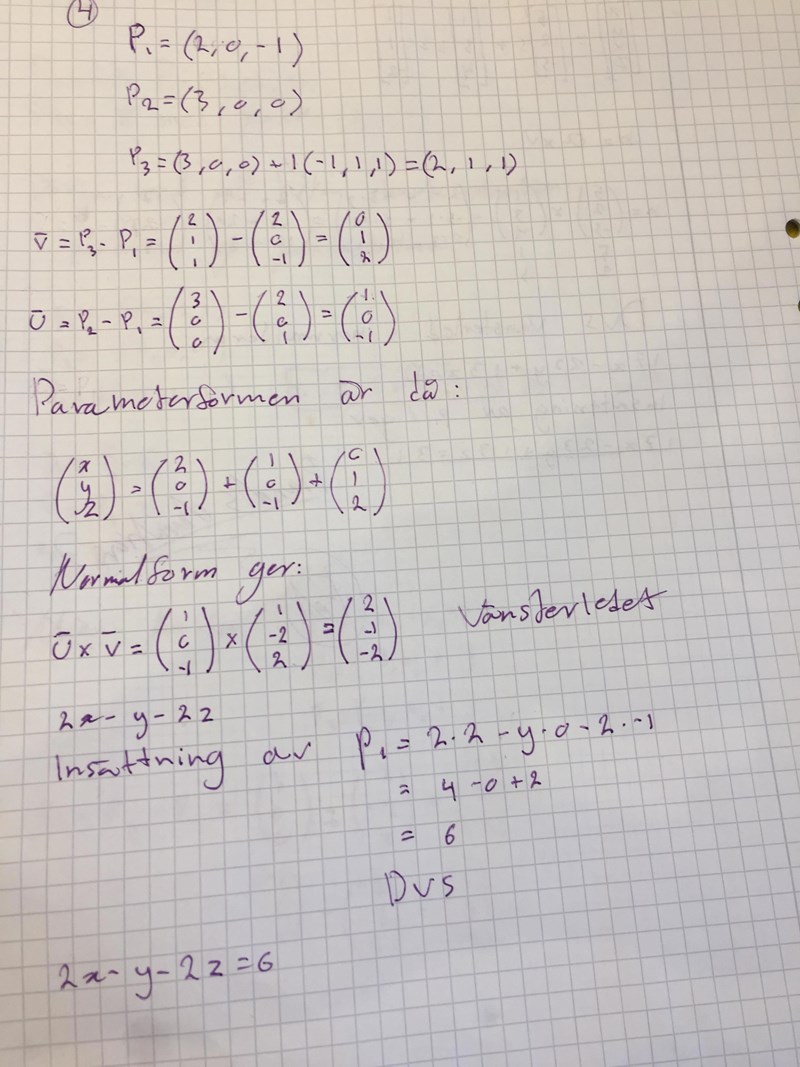 4
P₁ = (2, 0, -1)
P₂ = (3, 0, 0)
P₃ = (3, 0, 0) + 1(-1, 1, 1) = (2, 1, 1)
v̄ = P₃ - P₁ = (2 1 1) - (2 0 -1) = (0 1 2)
ū = P₂ - P₁ = (3 0 0) - (2 0 1) = (1 0 -1)
Parameterformen är då:
(x y z) = (2 0 -1) + (1 0 -1) + (0 1 2)
Normalform ger:
ū x v̄ = (1 0 -1) x (1 -2 2) = (2 -1 -2) Vänsterledet
2x - y - 2z
Insättning av P₁ = 2·2 - y·0 - 2·-1
= 4 - 0 + 2
= 6
Dvs
2x - y - 2z = 6